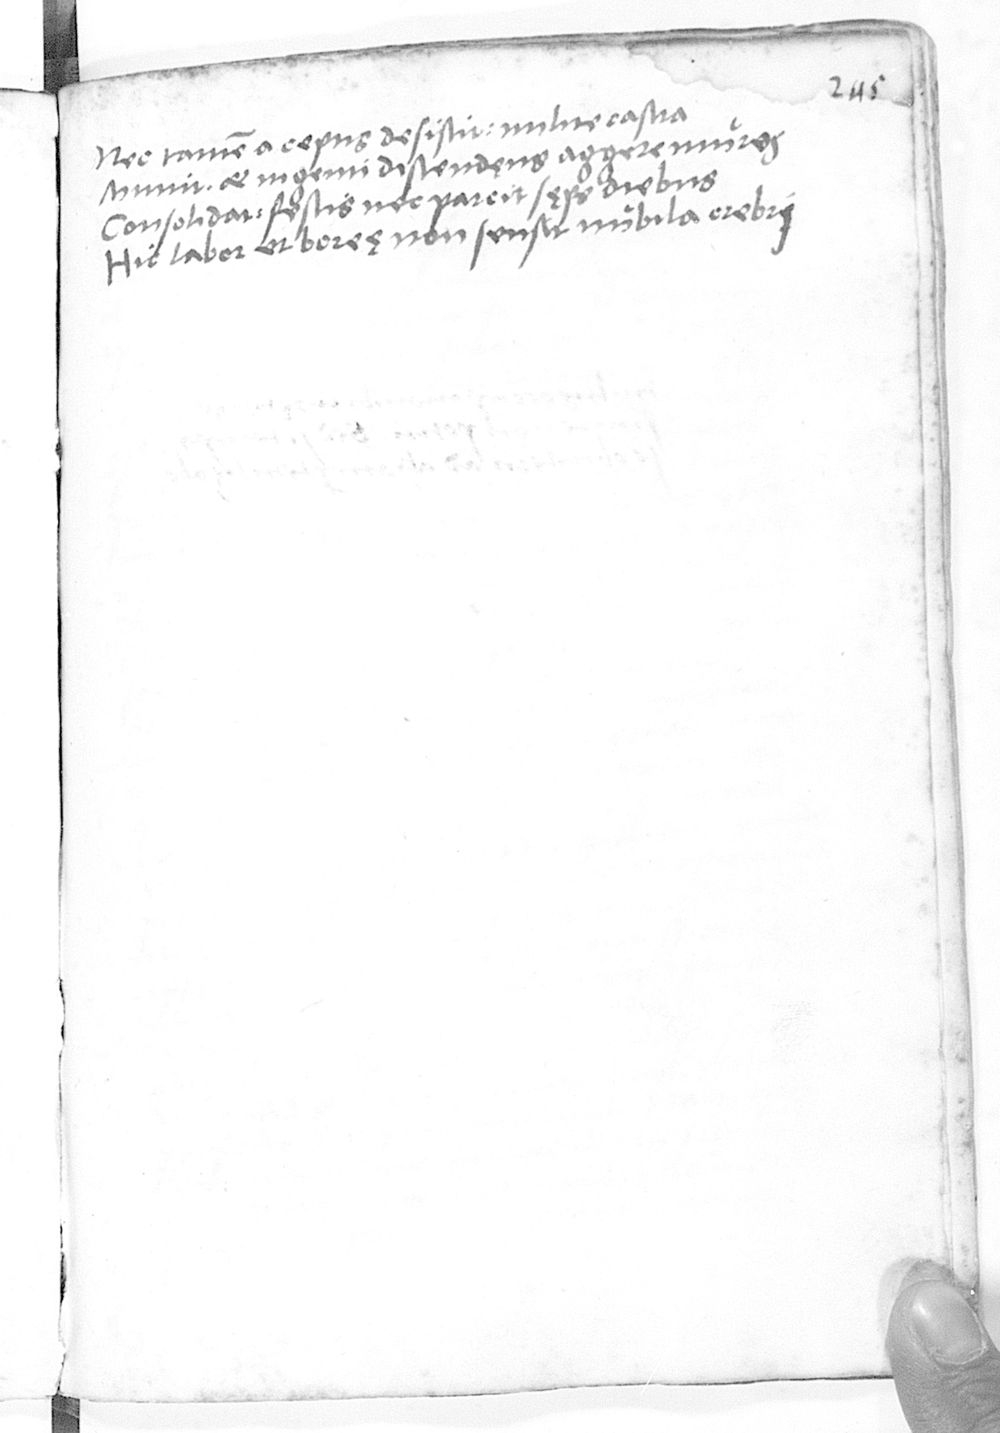 245
Nec tamē a cęptis desistit: milite castra
Munit. & ingenti distendens aggere muros
Consolidat: festis nec parcit sępe diebus
Hic labor et boreę non sensit nubila crebri